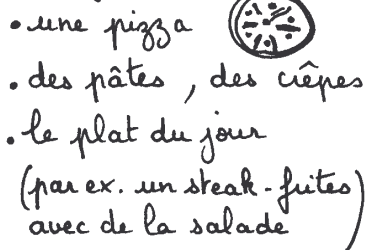 • une pizza
• des pâtes, des crêpes
• le plat du jour
(par ex. un steak-frites)
avec de la salade